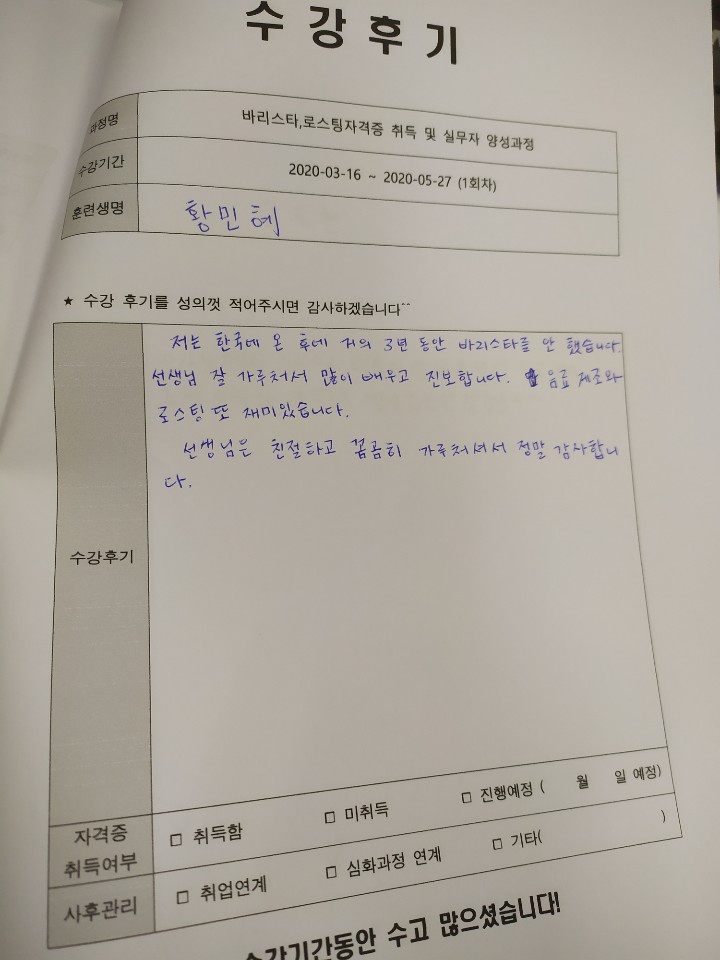 수강후기
과정명 바리스타,로스팅자격증 취득 및 실무자 양성과정
수강기간 2020-03-16 ~ 2020-05-27 (1회차)
훈련생명 황민혜
★ 수강 후기를 성의껏 적어주시면 감사하겠습니다^^
저는 한국에 온 후에 거의 3년 동안 바리스타를 안 했습니다.
선생님 잘 가루쳐서 많이 배우고 진보합니다. 음료 제조와
로스팅 또 재미있습니다.
선생님은 친절하고 꼼꼼히 가루쳐셔서 정말 감사합니
다.
수강후기
자격증 취득여부 □ 취득함 □ 미취득 □ 진행예정 ( 월 일 예정)
사후관리 □ 취업연계 □ 심화과정 연계 □ 기타( )
수강기간동안 수고 많으셨습니다!